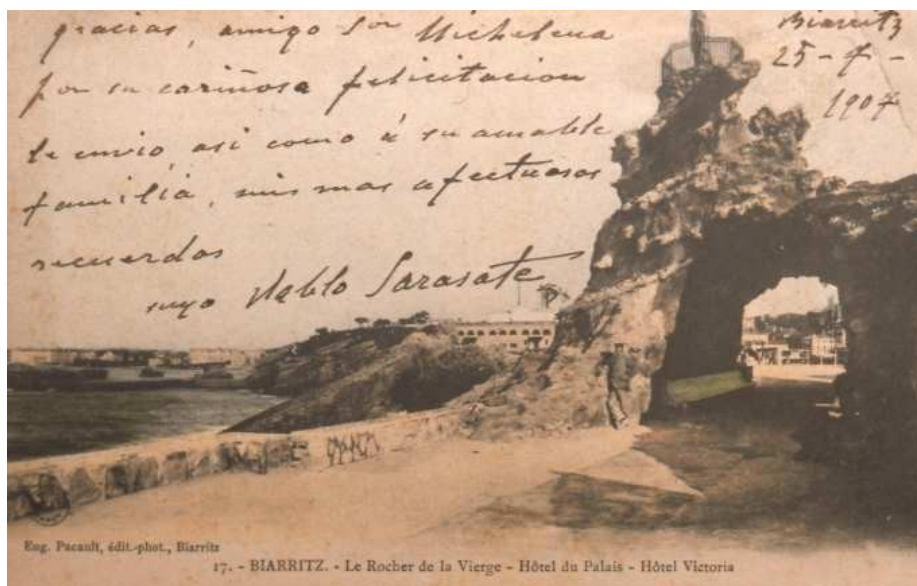 gracias, amigo Sor Michelena
por su cariñosa felicitacion
le envio, asi como á su amable
familia, mis mas afectuosos
recuerdos
suyo Pablo Sarasate
Biarritz
25-7-
1904
Eug. Pacault, édit.-phot., Biarritz
17. - BIARRITZ. - Le Rocher de la Vierge - Hôtel du Palais - Hôtel Victoria